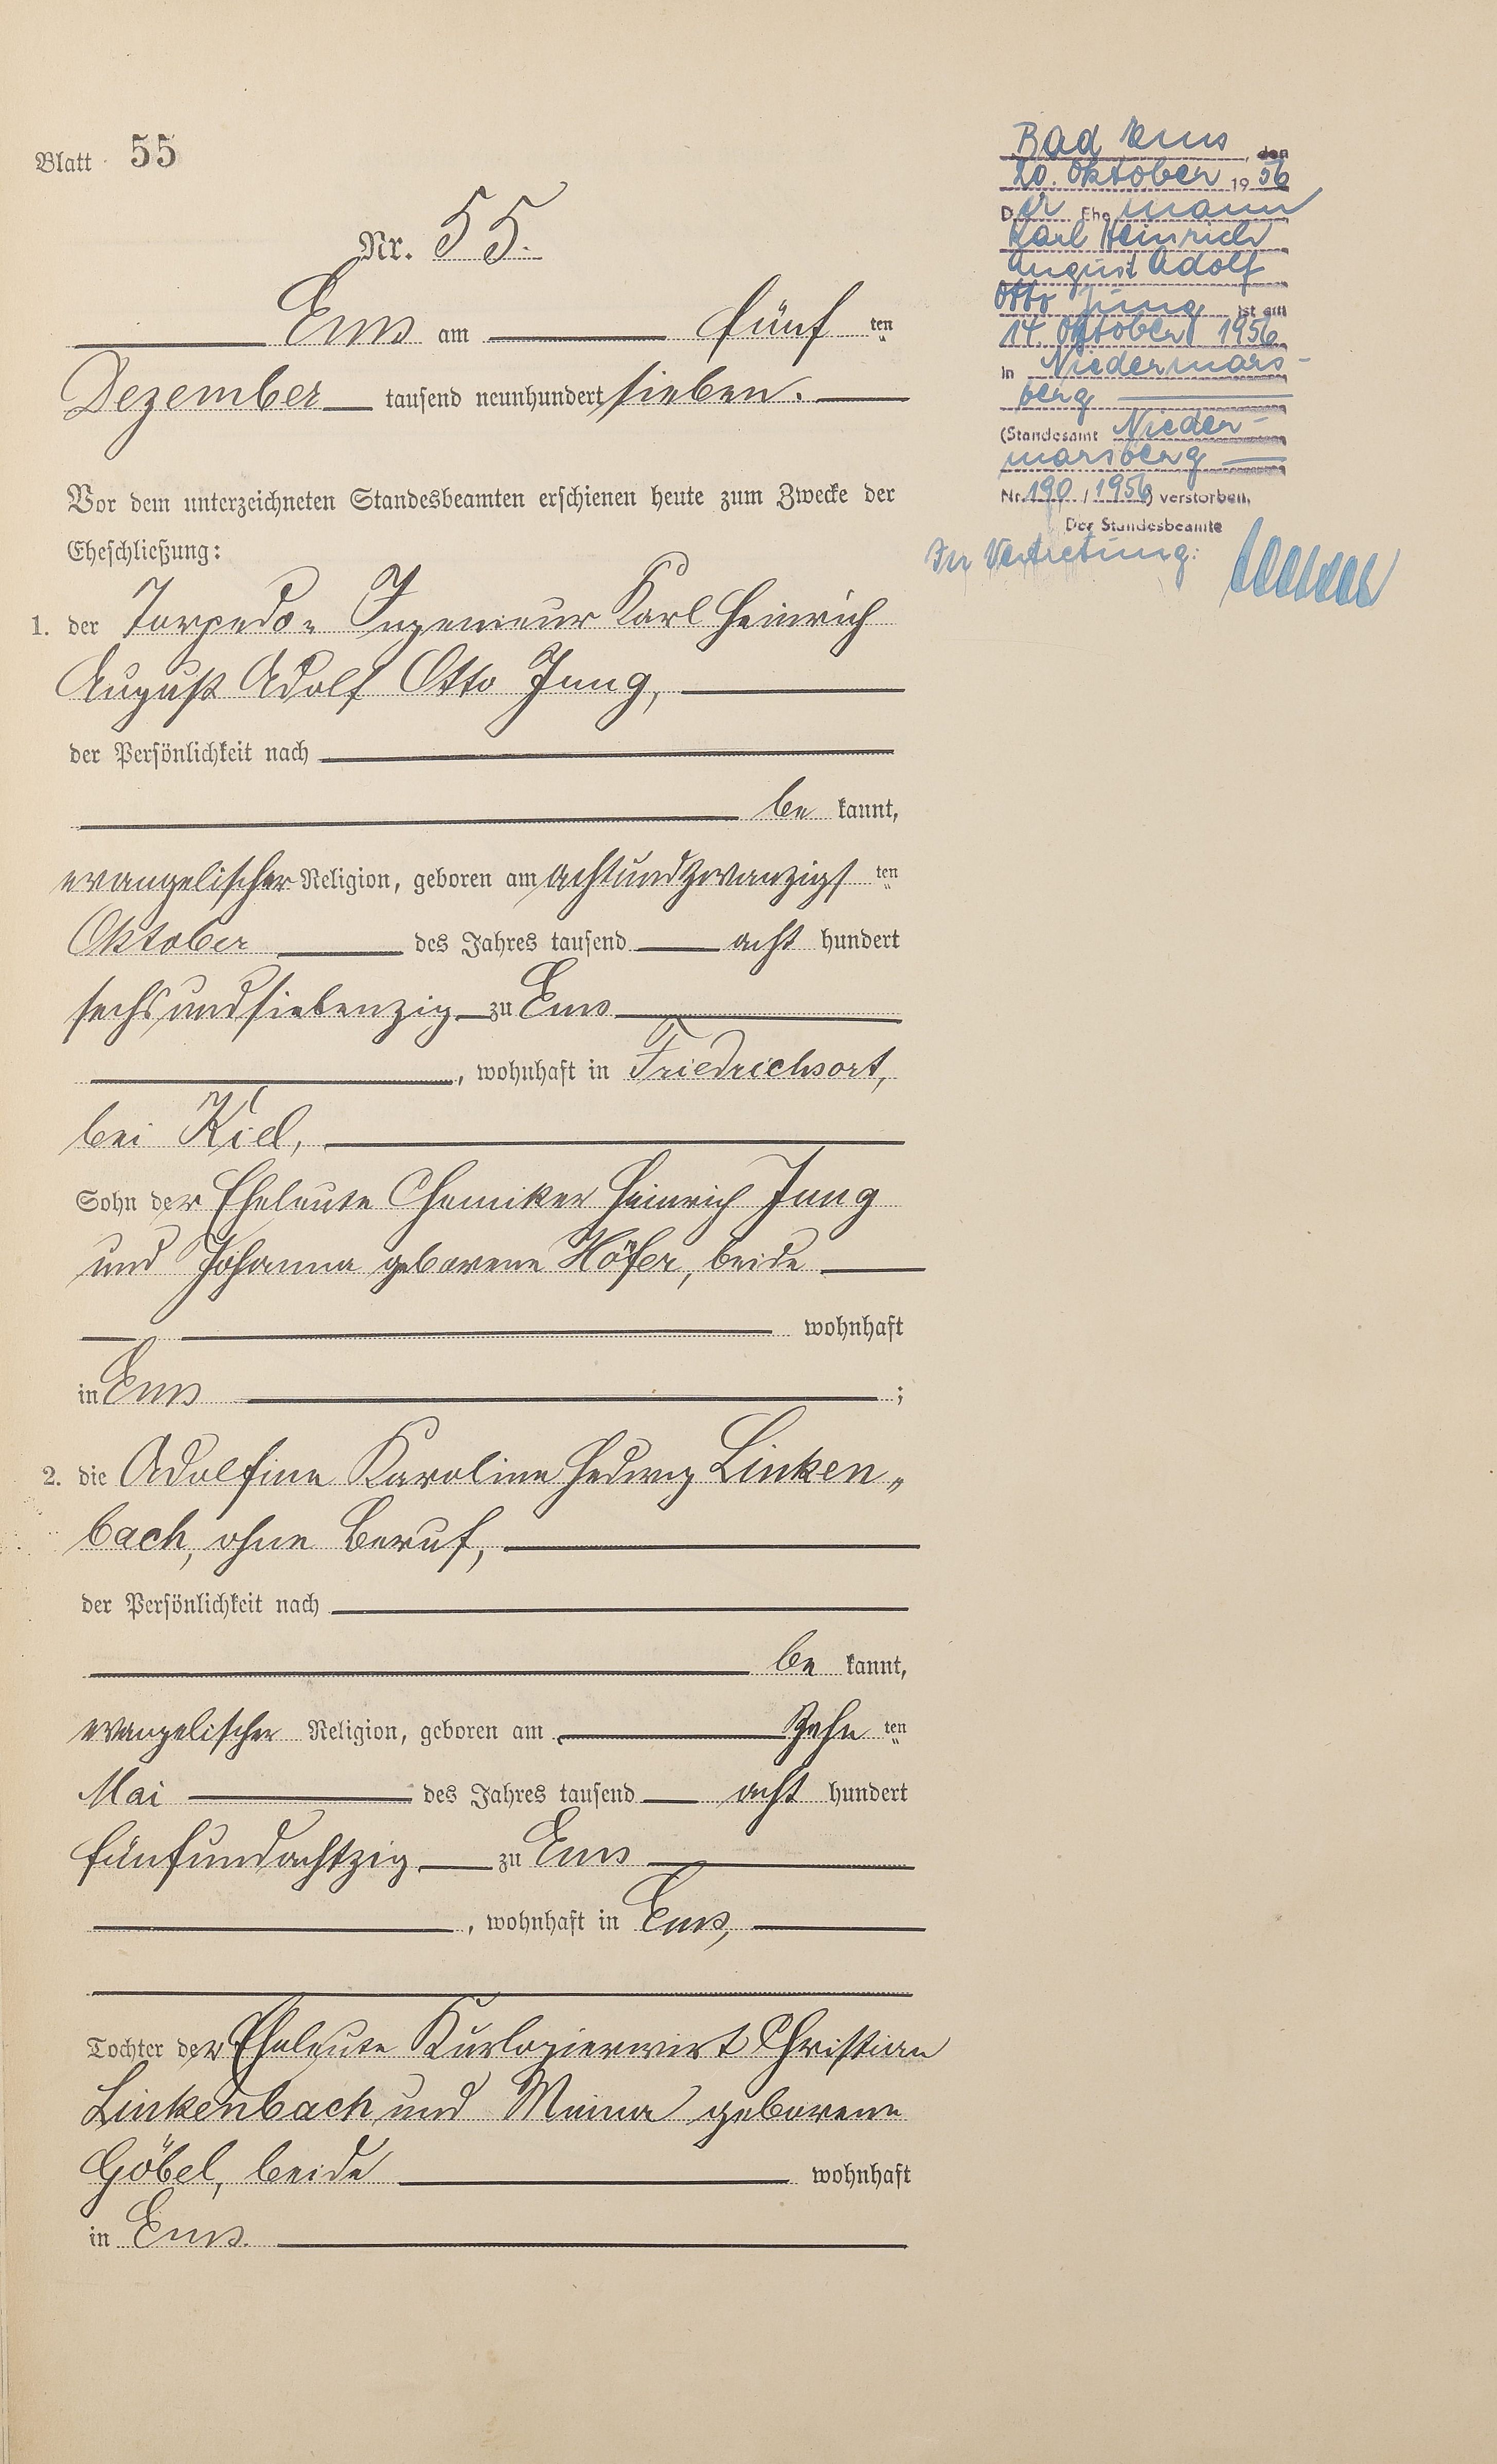 Blatt 55
Nr. 55.
Ems am fünf ten
Dezember tausend neunhundert sieben.
Vor dem unterzeichneten Standesbeamten erschienen heute zum Zwecke der
Eheschließung:
1. der Torpedo- Ingenieur Karl Heinrich
August Adolf Otto Jung,
der Persönlichkeit nach
be kannt,
evangelischer Religion, geboren am achtundzwanzigs ten
Oktober des Jahres tausend acht hundert
sechsundsiebenzig zu Ems
, wohnhaft in Friedrichsort,
bei Kiel,
Sohn der Eheleute Chemiker Heinrich Jung
und Johanna geborene Höfer, beide
wohnhaft
in Ems ;
2. die Adolfine Karoline Hedwig Linken„
bach, ohne Beruf,
der Persönlichkeit nach
be kannt,
evangelischer Religion, geboren am Zehn ten
Mai des Jahres tausend acht hundert
fünfundachtzig zu Ems
, wohnhaft in Ems,
Tochter der Eheleute Kurlogierwirt Christian
Linkenbach und Minna geborene
Göbel, beide wohnhaft
in Ems.
Bad Ems, den
20. Oktober 1956
Der Ehemann
Karl Heinrich
August Adolf
Otto Jung ist am
14. Oktober 1956
in Niedermars-
berg
(Standesamt Nieder-
marsberg
Nr. 190 / 1956) verstorben,
Der Standesbeamte
In Vertretung: